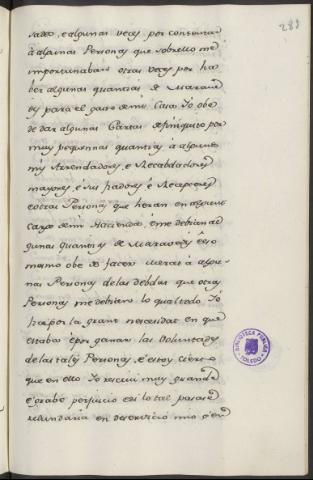 289
sadas, e algunas veces, por contentar
à algunas Personas que sobrello me
importunaban, otras veces por ha
ber algunas quantias de Marave
dis para el gasto de mi Casa Yo obe
de dar algunas Cartas de finiquito por
muy pequennas quantias à algunos
mis Arrendadores, e Recabdadores
mayores, e sus fiadores è Recaptores
e otras Personas que heran en algunt
cargo de mi Hacienda, è me debian al
gunas quantias de Maravedis è eso
mesmo obe de facer Merced à algu-
nas Personas de las debdas que otras
Personas me debian lo qual todo Yo
fice por la grant necesidat en que
estaba è por ganar las Voluntades
de las tales Personas, è estoy cierto
que en ello Yo rescivi muy grande
è grabe perjuicio è si lo tal pasase
redundaria en deservicio mio è en
BIBLIOTECA PUBLICA
TOLEDO